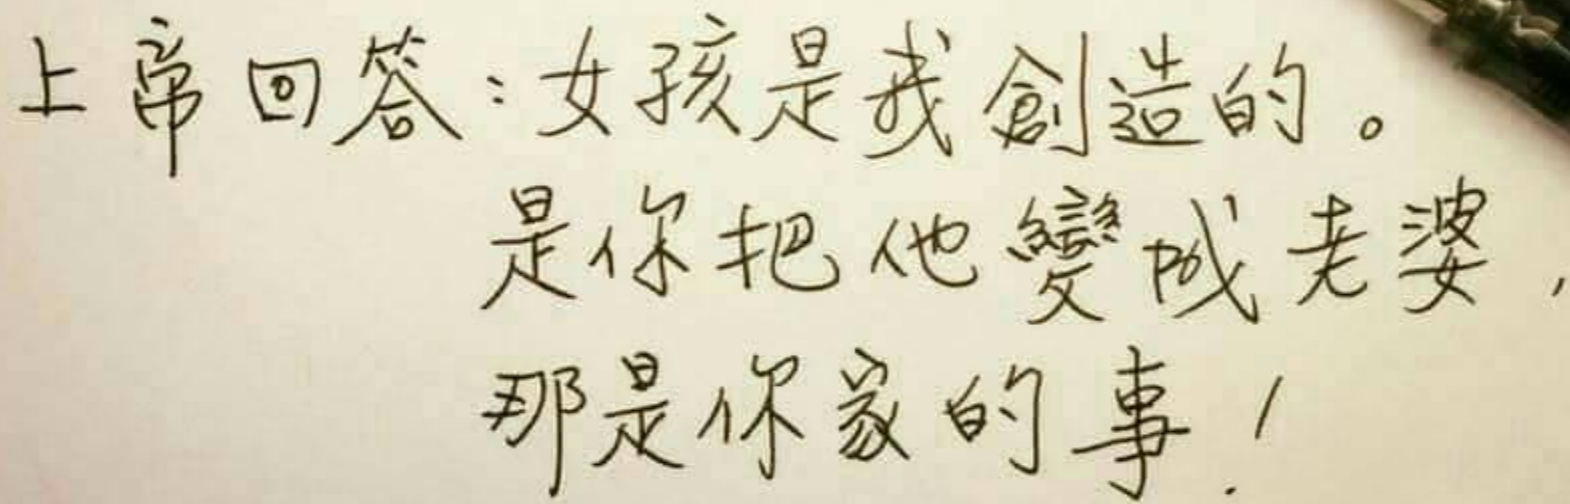 上帝回答：女孩是我創造的。
是你把他變成老婆，
那是你家的事！